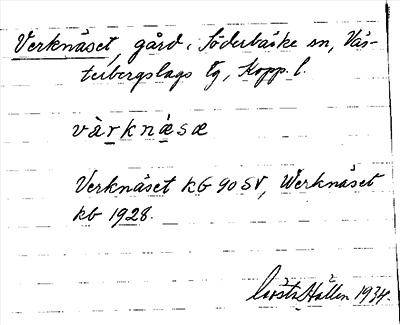 Verknäset, gård i Söderbärke sn, Väs-
terbergslags tg, Kopp. l.
vàrknæ̀sæ
Verknäset KG 90 SV, Werknäset
kb 1928.
Gösta Hallén 1934.